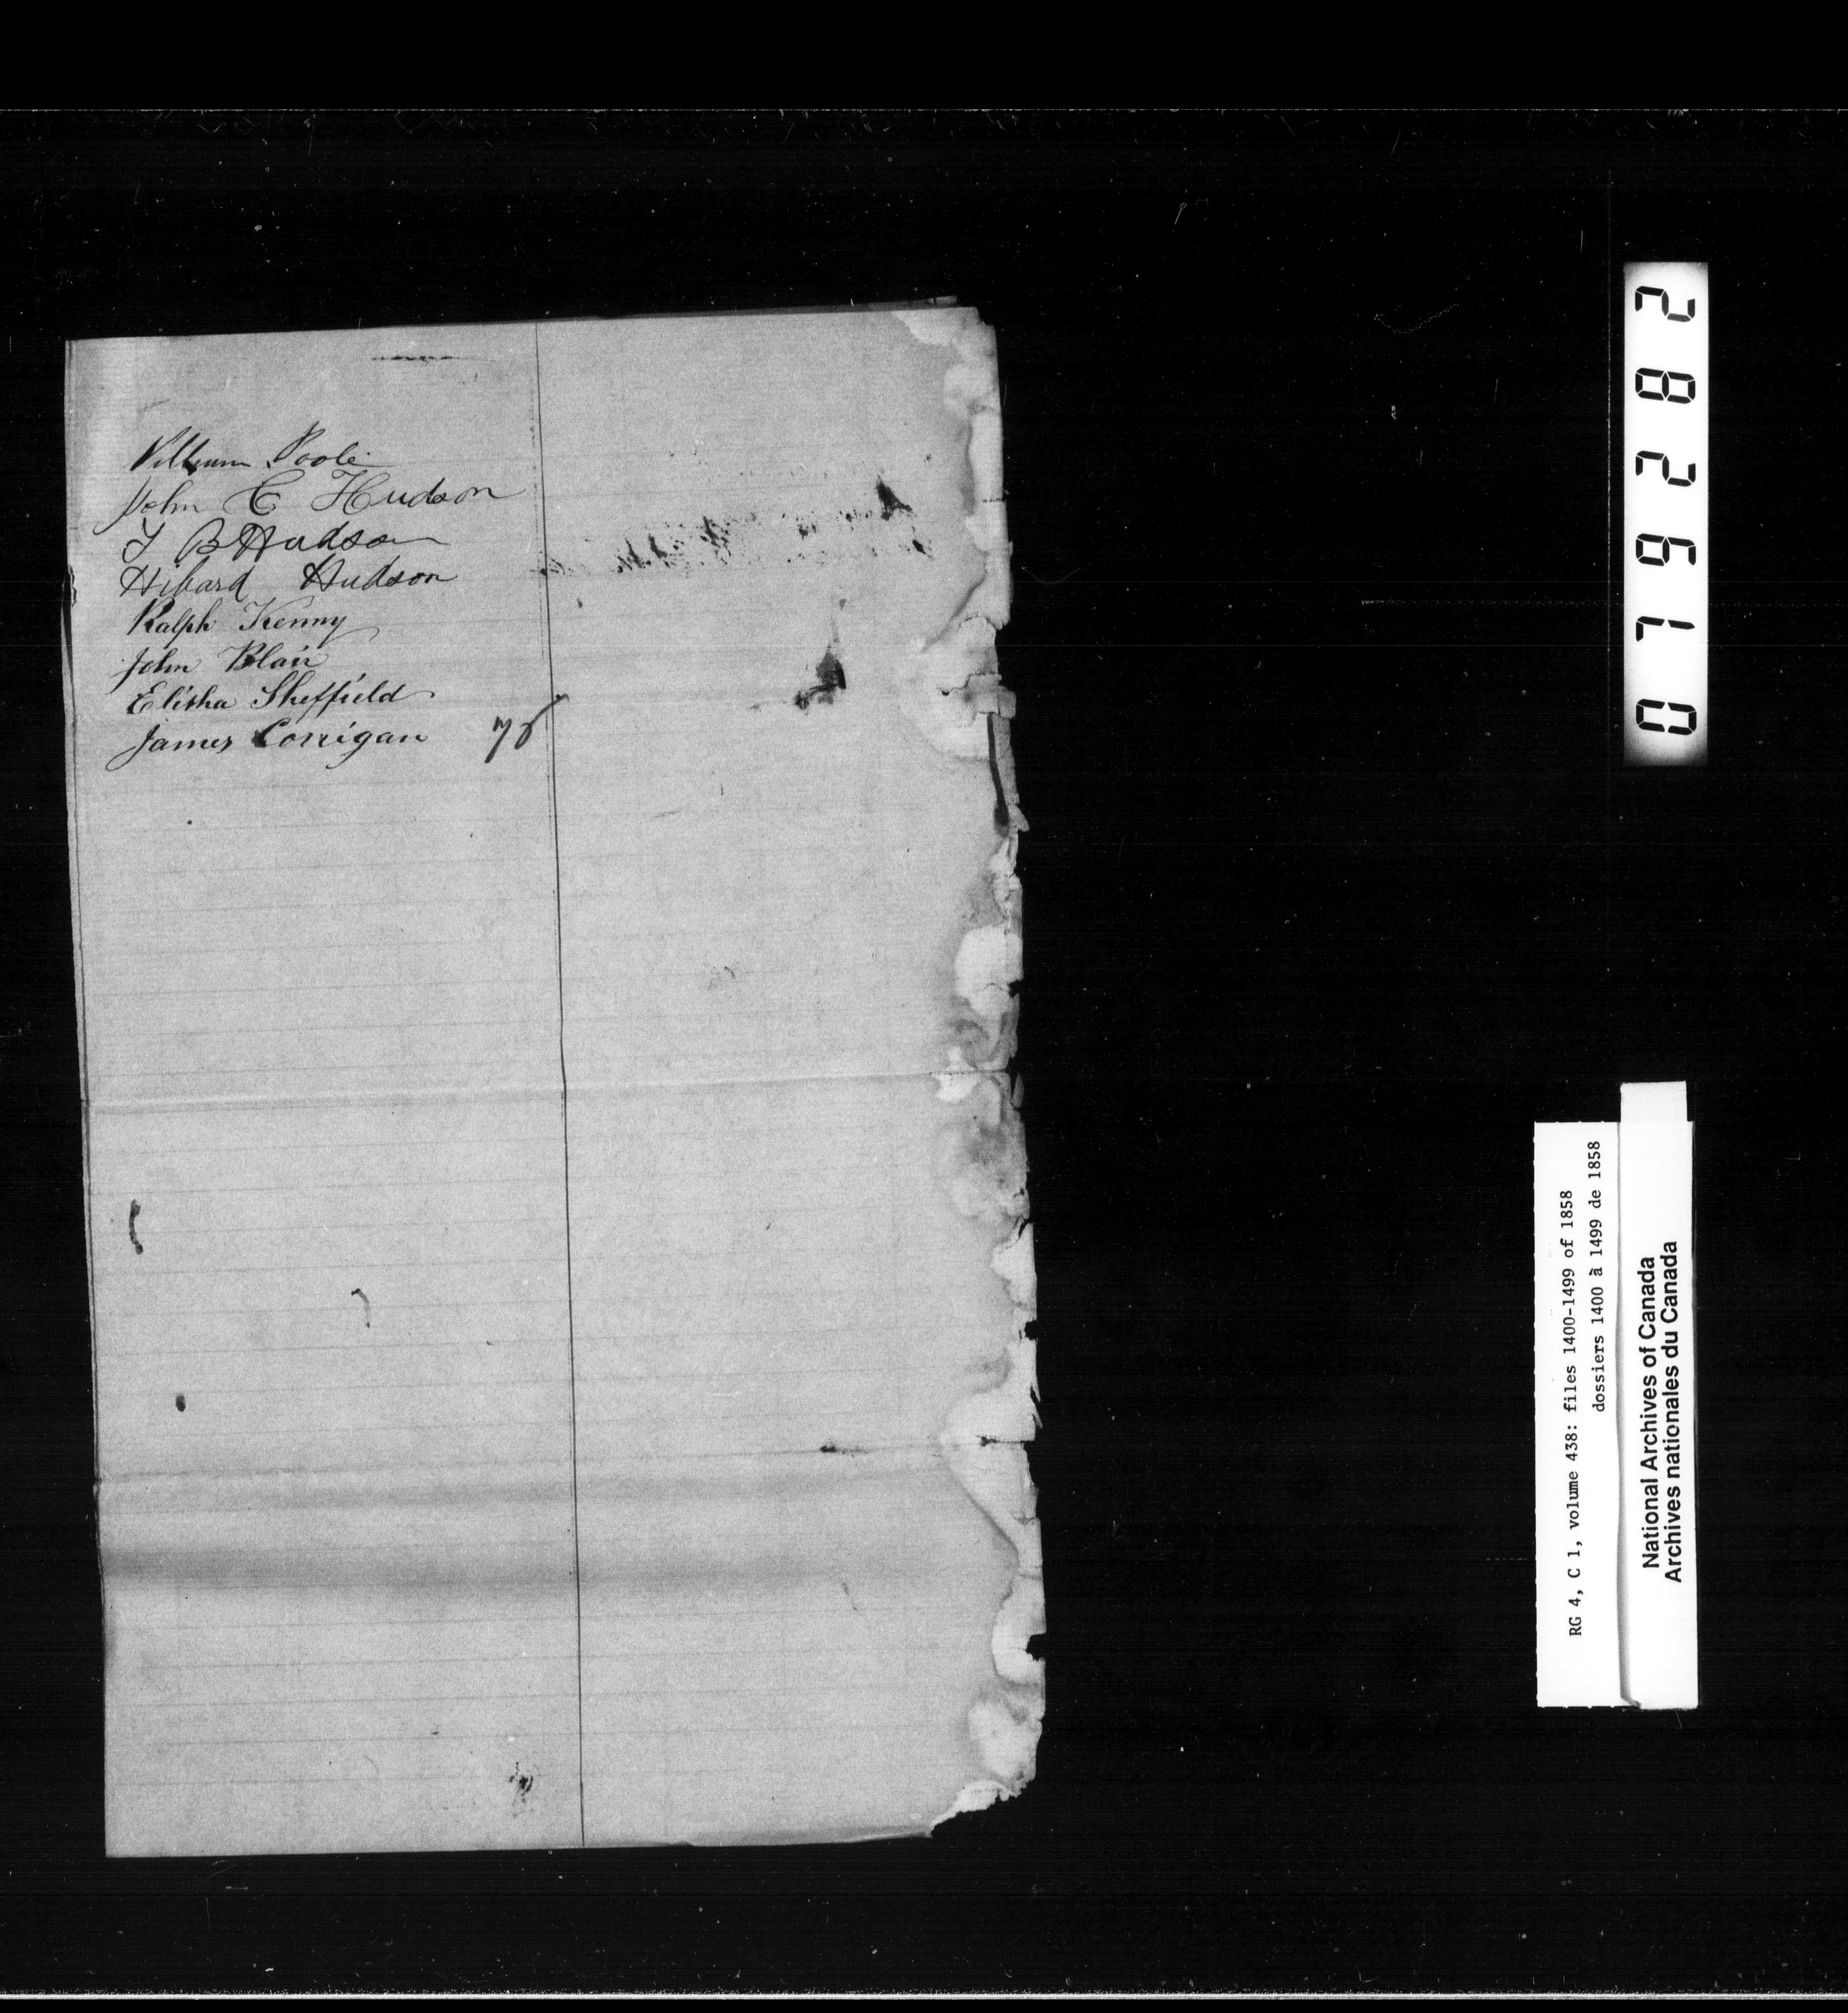 William Poole
John C Hudson
T B Hudson
Hibard Hudson
Ralph Kenny
John Blair
Elisha Sheffield
James Corrigan 78
079282
RG 4, C 1, volume 438: files 1400-1499 of 1858
dossiers 1400 à 1499 de 1858
National Archives of Canada
Archives nationales du Canada